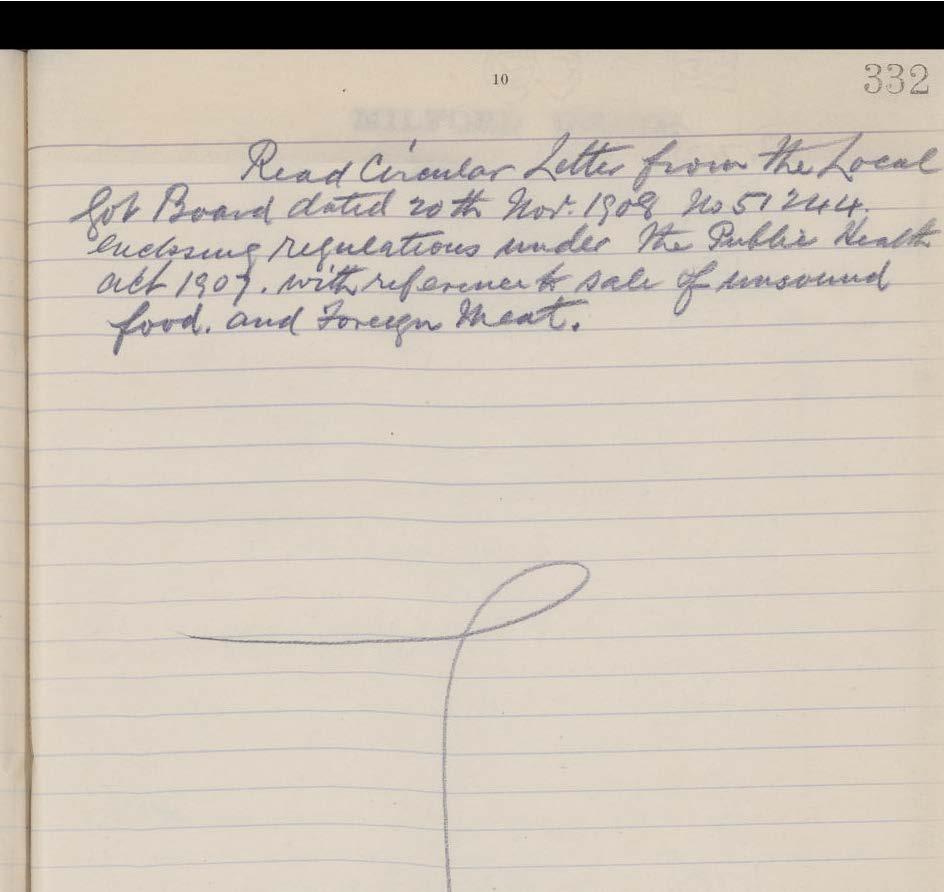 10
332
Read Circular Letter from the Local
Govt Board dated 20th Nov. 1908 No 51244.
enclosing regulations under the Public Health
act 1907. with reference to sale of unsound
food. and Foreign Meat.